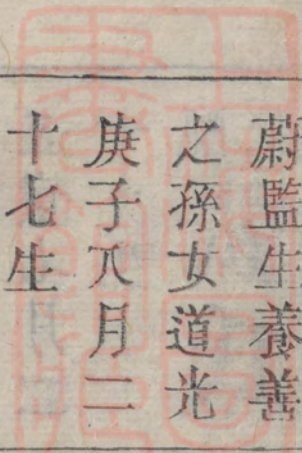 蔚監生養善
之孫女道光
庚子八月二
十七生